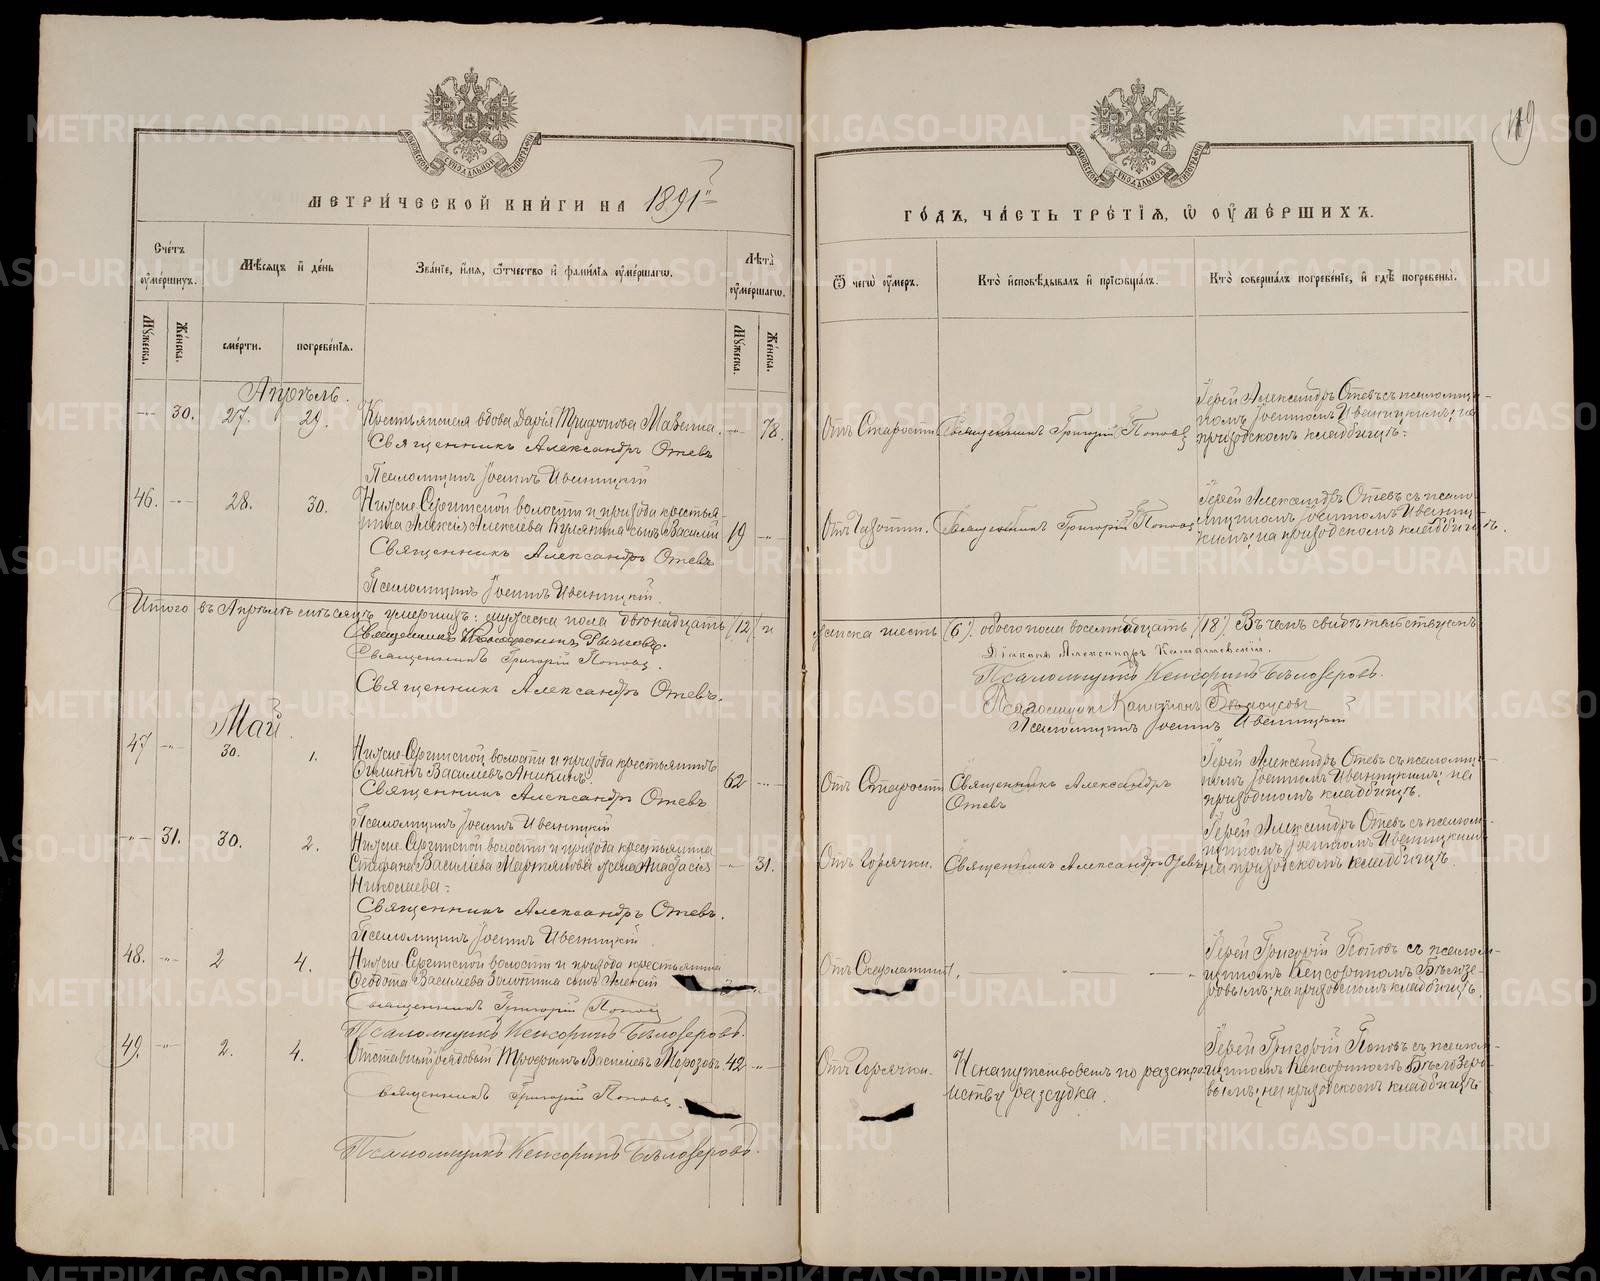 119
МЕТРИ́ЧЕСКОЙ КНИ́ГИ НА 1891й
ГО́ДЪ, ЧА́СТЬ ТРЕ́ТІѦ, Ѡ ОУМЕ́РШИХЪ.
Сче́тъ оуме́ршихъ.
Мѣсѧцъ и де́нь
Зва́ніе, и́мѧ, ѻ́тчество и фами́лія оуме́ршагѡ.
Лѣта̀ оуме́ршагѡ.
Ѿ чегѡ̀ оу́меръ.
Кто̀ и҆сповѣ́дывалъ и҆ прїѡбща́лъ.
Кто̀ соверша́лъ погребе́ніе, и҆ гдѣ̀ погребены̀.
Мꙋ́жеска.
Же́нска.
сме́рти.
погребе́нія.
Мꙋ́жеска.
Же́нска.
Апрѣль.
30. 27. 29. Крестьянская вдова Дарія Трифонова Мазеина. 78.
Священникъ Александръ Отевъ
Псаломщикъ Іоаннъ Ивеницкій
Отъ старости. Священникъ Григорій Поповъ
Іерей Александръ Отевъ съ псаломщи-
комъ Іоанномъ Ивеницкимъ; на
приходскомъ кладбищѣ.
46. 28. 30. Нижне-Сергинской волости и прихода крестья-
нина Алексія Алексѣева Кулякина сынъ Василій 19
Священникъ Александръ Отевъ
Псаломщикъ Іоаннъ Ивеницкій.
Отъ чахотки. Священникъ Григорій Поповъ
Іерей Александръ Отевъ съ псало-
мщикомъ Іоанномъ Ивениц-
кимъ; на приходскомъ кладбищѣ.
Итого въ Апрѣлѣ мѣсяцѣ умершихъ: мужеска пола двѣнадцать (12) и женска шесть (6). обоего пола восемнадцать (18). Въ чемъ свидѣтельствуемъ:
Священникъ
Священникъ Григорій Поповъ.
Священникъ Александръ Отевъ.
Діаконъ Александръ
Псаломщикъ Кенсоринъ Бѣлозеровъ.
Псаломщикъ Капитонъ Бѣлоусовъ
Псаломщикъ Іоаннъ Ивеницкій
Май.
47 30. 1. Нижне-Сергинской волости и прихода крестьянинъ
Василіевъ Аникинъ 62
Священникъ Александръ Отевъ
Псаломщикъ Іоаннъ Ивеницкій
Отъ старости. Священникъ Александръ
Отевъ
Іерей Александръ Отевъ съ псаломщи-
комъ Іоанномъ Ивеницкимъ; на
приходскомъ кладбищѣ.
31. 30. 2. Нижне-Сергинской волости и прихода крестьянина
Стефана Василіева Мартьянова жена Анастасія 31.
Николаева.
Священникъ Александръ Отевъ.
Псаломщикъ Іоаннъ Ивеницкій.
Отъ горячки. Священникъ Александръ Отевъ
Іерей Александръ Отевъ съ псалом-
щикомъ Іоанномъ Ивеницкимъ
на приходскомъ кладбищѣ.
48. 2 4. Нижне-Сергинской волости и прихода крестьянина
Ѳеодота Василіева Золотина сынъ Алексій
Священникъ Григорій Поповъ
Псаломщикъ Кенсоринъ Бѣлозеровъ.
Отъ скарлатины.
Іерей Григорій Поповъ съ псалом-
щикомъ Кенсориномъ Бѣлозе-
ровымъ; на приходскомъ кладбищѣ.
49. 2. 4. Отставный рядовый Трофимъ Василіевъ Морозовъ. 42
Священникъ Григорій Поповъ.
Псаломщикъ Кенсоринъ Бѣлозеровъ.
Отъ горячки. Не напутствованъ по разстро-
йству разсудка.
Іерей Григорій Поповъ съ псалом-
щикомъ Кенсориномъ Бѣлозеро-
вымъ; на приходскомъ кладбищѣ
METRIKI.GASO-URAL.RU